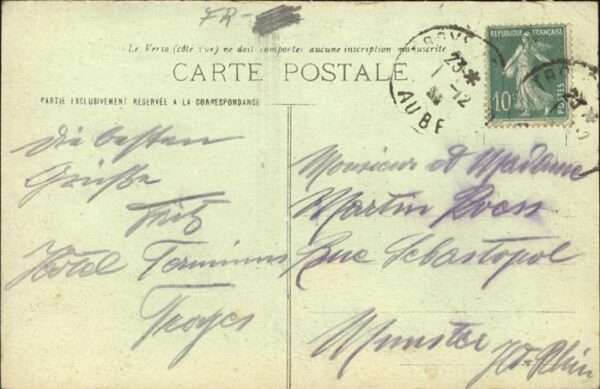 FR-
Le Verso (côté vue) ne doit comporter aucune inscription manuscrite
CARTE POSTALE
PARTIE EXCLUSIVEMENT RÉSERVÉE A LA CORRESPONDANCE
TROYES
23 *
1 -12
AUBE
REPUBLIQUE FRANÇAISE
10c
POSTES
TRO
23 *
Die besten
Grüße
Fritz
Hôtel Terminus
Troyes
Monsieur et Madame
Martin
Rue Sebastopol
Munster
Ht-Rhin